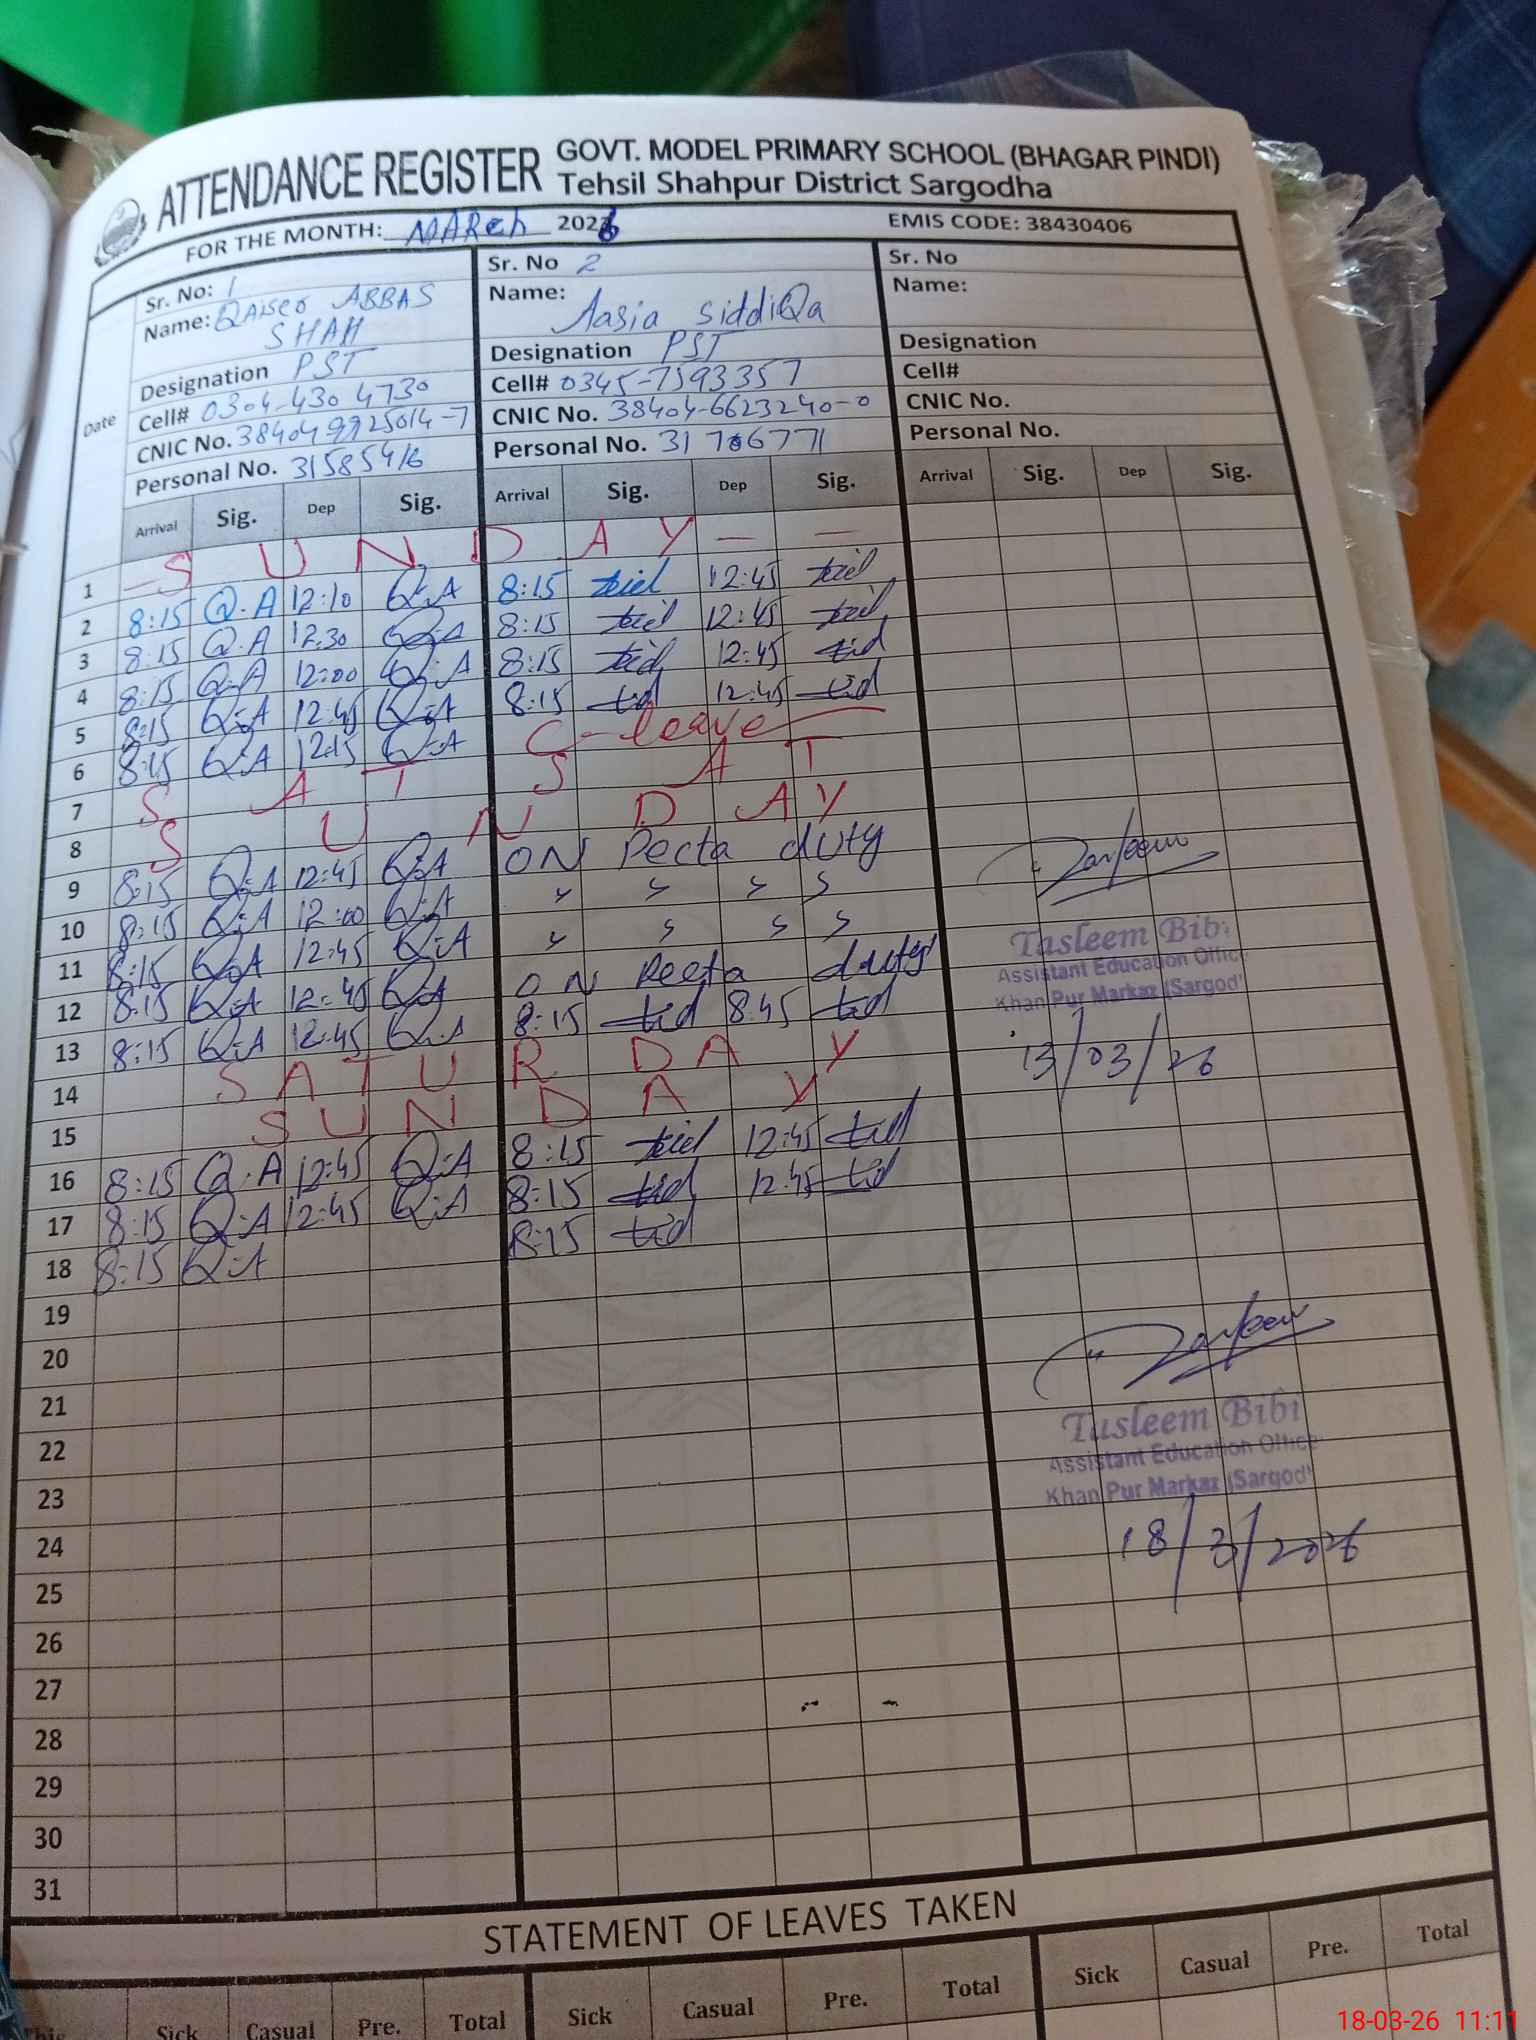 ATTENDANCE REGISTER GOVT. MODEL PRIMARY SCHOOL (BHAGAR PINDI)
Tehsil Shahpur District Sargodha
FOR THE MONTH: MARch 2026 EMIS CODE: 38430406
Date
Sr. No: 1
Name: QAISeo ABBAS
SHAH
Designation PST
Cell# 0304-430 4730
CNIC No. 38404 9925014-7
Personal No. 31585416
Sr. No 2
Name: Aasia SiddiQa
Designation PST
Cell# 0345-7593357
CNIC No. 38404-6623240-0
Personal No. 31786771
Sr. No
Name:
Designation
Cell#
CNIC No.
Personal No.
Arrival Sig. Dep Sig. Arrival Sig. Dep Sig. Arrival Sig. Dep Sig.
1 — S U N D A Y — —
2 8:15 Q.A 12:10 Q.A 8:15 12:45
3 8:15 Q.A 12:30 Q.A 8:15 12:45
4 8:15 Q.A 12:00 Q.A 8:15 12:45
5 8:15 Q.A 12:45 Q.A 8:15 12:45
6 8:15 Q.A 12:15 Q.A C-leave
7 S A T S A T
8 S U N D A Y
9 8:15 Q.A 12:45 Q.A ON Pecta duty
10 8:15 Q.A 12:00 Q.A
11 8:15 Q.A 12:45 Q.A
12 8:15 Q.A 12:45 Q.A ON Pecta duty
13 8:15 Q.A 12:45 Q.A 8:15 8:45
14 S A T U R D A Y
15 S U N D A Y
16 8:15 Q.A 12:45 Q.A 8:15 12:45
17 8:15 Q.A 12:45 Q.A 8:15 12:45
18 8:15 Q.A 8:15
19
20
21
22
23
24
25
26
27
28
29
30
31
Tasleem Bibi
Assistant Education Office
Khan Pur Markaz (Sargod
13/03/26
Tasleem Bibi
Assistant Education Office
Khan Pur Markaz (Sargod
18/3/2026
STATEMENT OF LEAVES TAKEN
Sick Casual Pre. Total Sick Casual Pre. Total Sick Casual Pre. Total
18-03-26 11:11